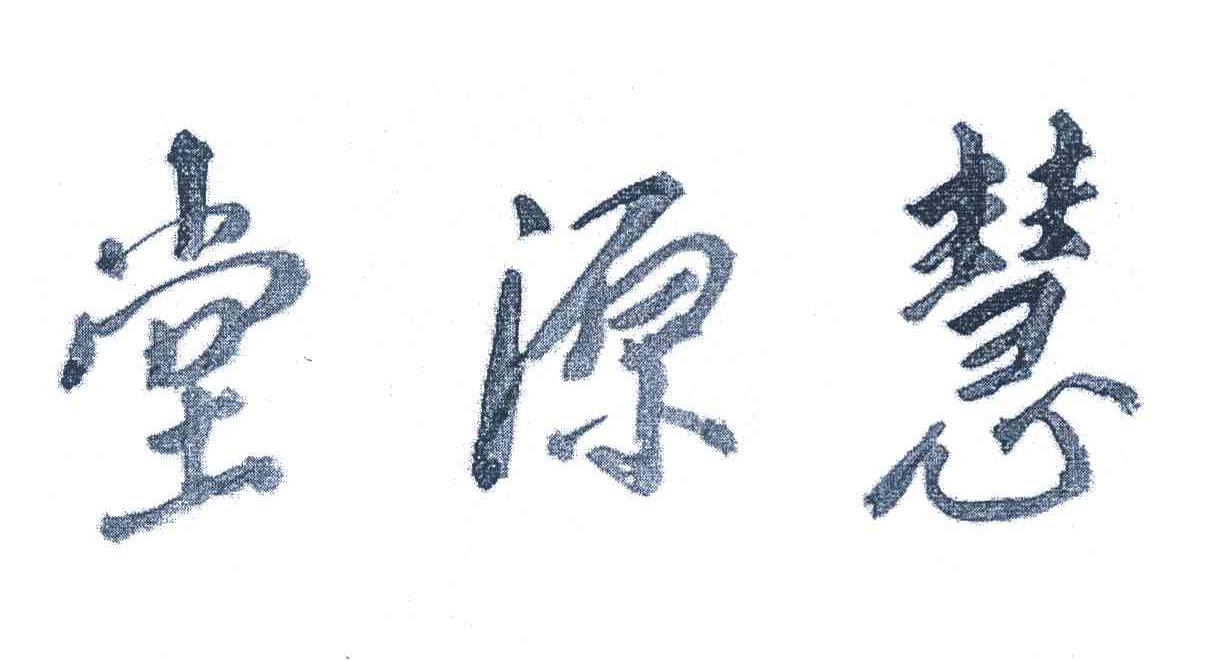 慧源堂